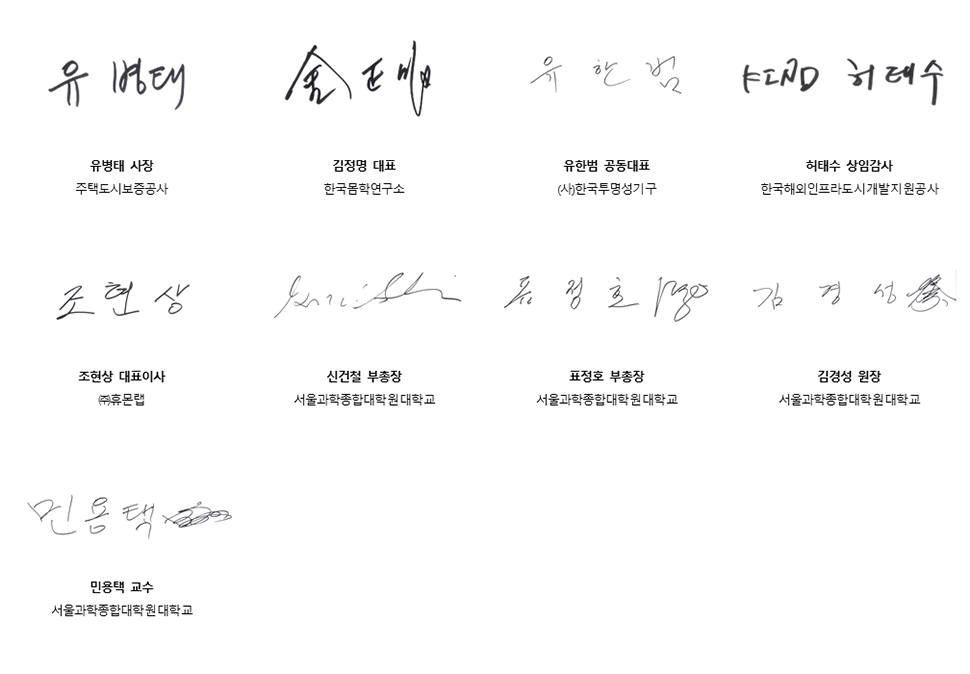 유병태
金正明
유한범
KIND 허태수
유병태 사장
김정명 대표
유한범 공동대표
허태수 상임감사
주택도시보증공사
한국몸학연구소
(사)한국투명성기구
한국해외인프라도시개발지원공사
조현상
표정호
김경성
조현상 대표이사
신건철 부총장
표정호 부총장
김경성 원장
㈜휴몬랩
서울과학종합대학원대학교
서울과학종합대학원대학교
서울과학종합대학원대학교
민용택
민용택 교수
서울과학종합대학원대학교